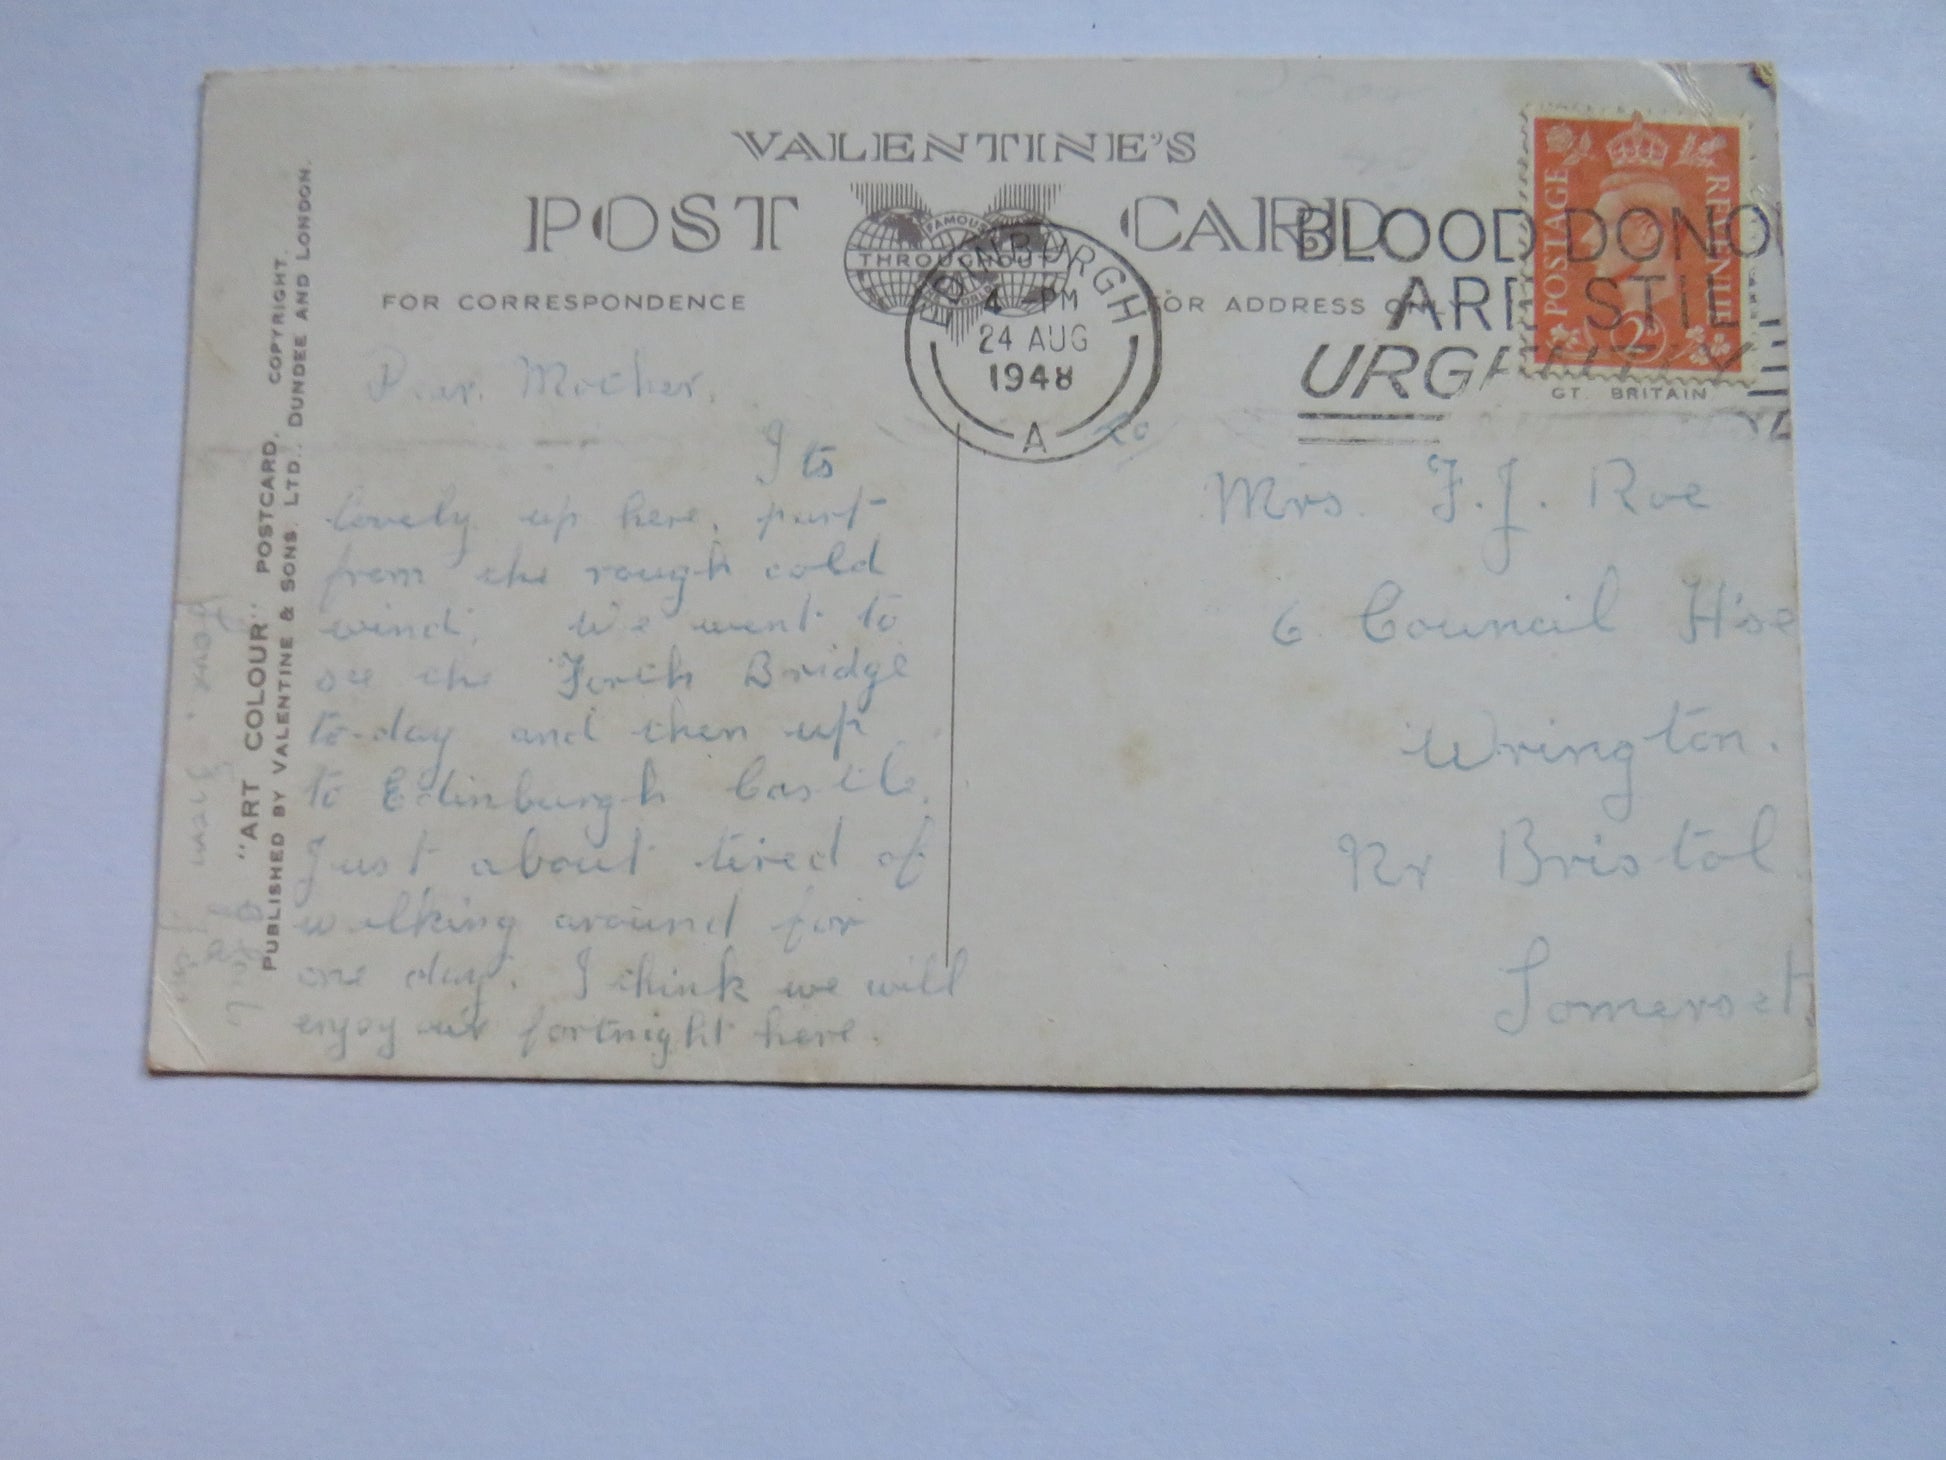 VALENTINE'S
POST CARD
FAMOUS
THROUGHOUT
WORLD
FOR CORRESPONDENCE
FOR ADDRESS ONLY
EDINBURGH
4 - PM
24 AUG
1948
A
BLOOD DONO
ARE STIL
URGENTLY
POSTAGE REVENUE
2D
GT. BRITAIN
"ART COLOUR" POSTCARD. COPYRIGHT.
PUBLISHED BY VALENTINE & SONS. LTD., DUNDEE AND LONDON.
Dear Mother.
Its
lovely up here, part
from the rough cold
wind. We went to
see the Forth Bridge
to-day and then up
to Edinburgh Castle.
Just about tired of
walking around for
one day. I think we will
enjoy our fortnight here.
To
Mrs. F. J. Roe
6 Council H'se
Wrington.
Nr Bristol
Somerset